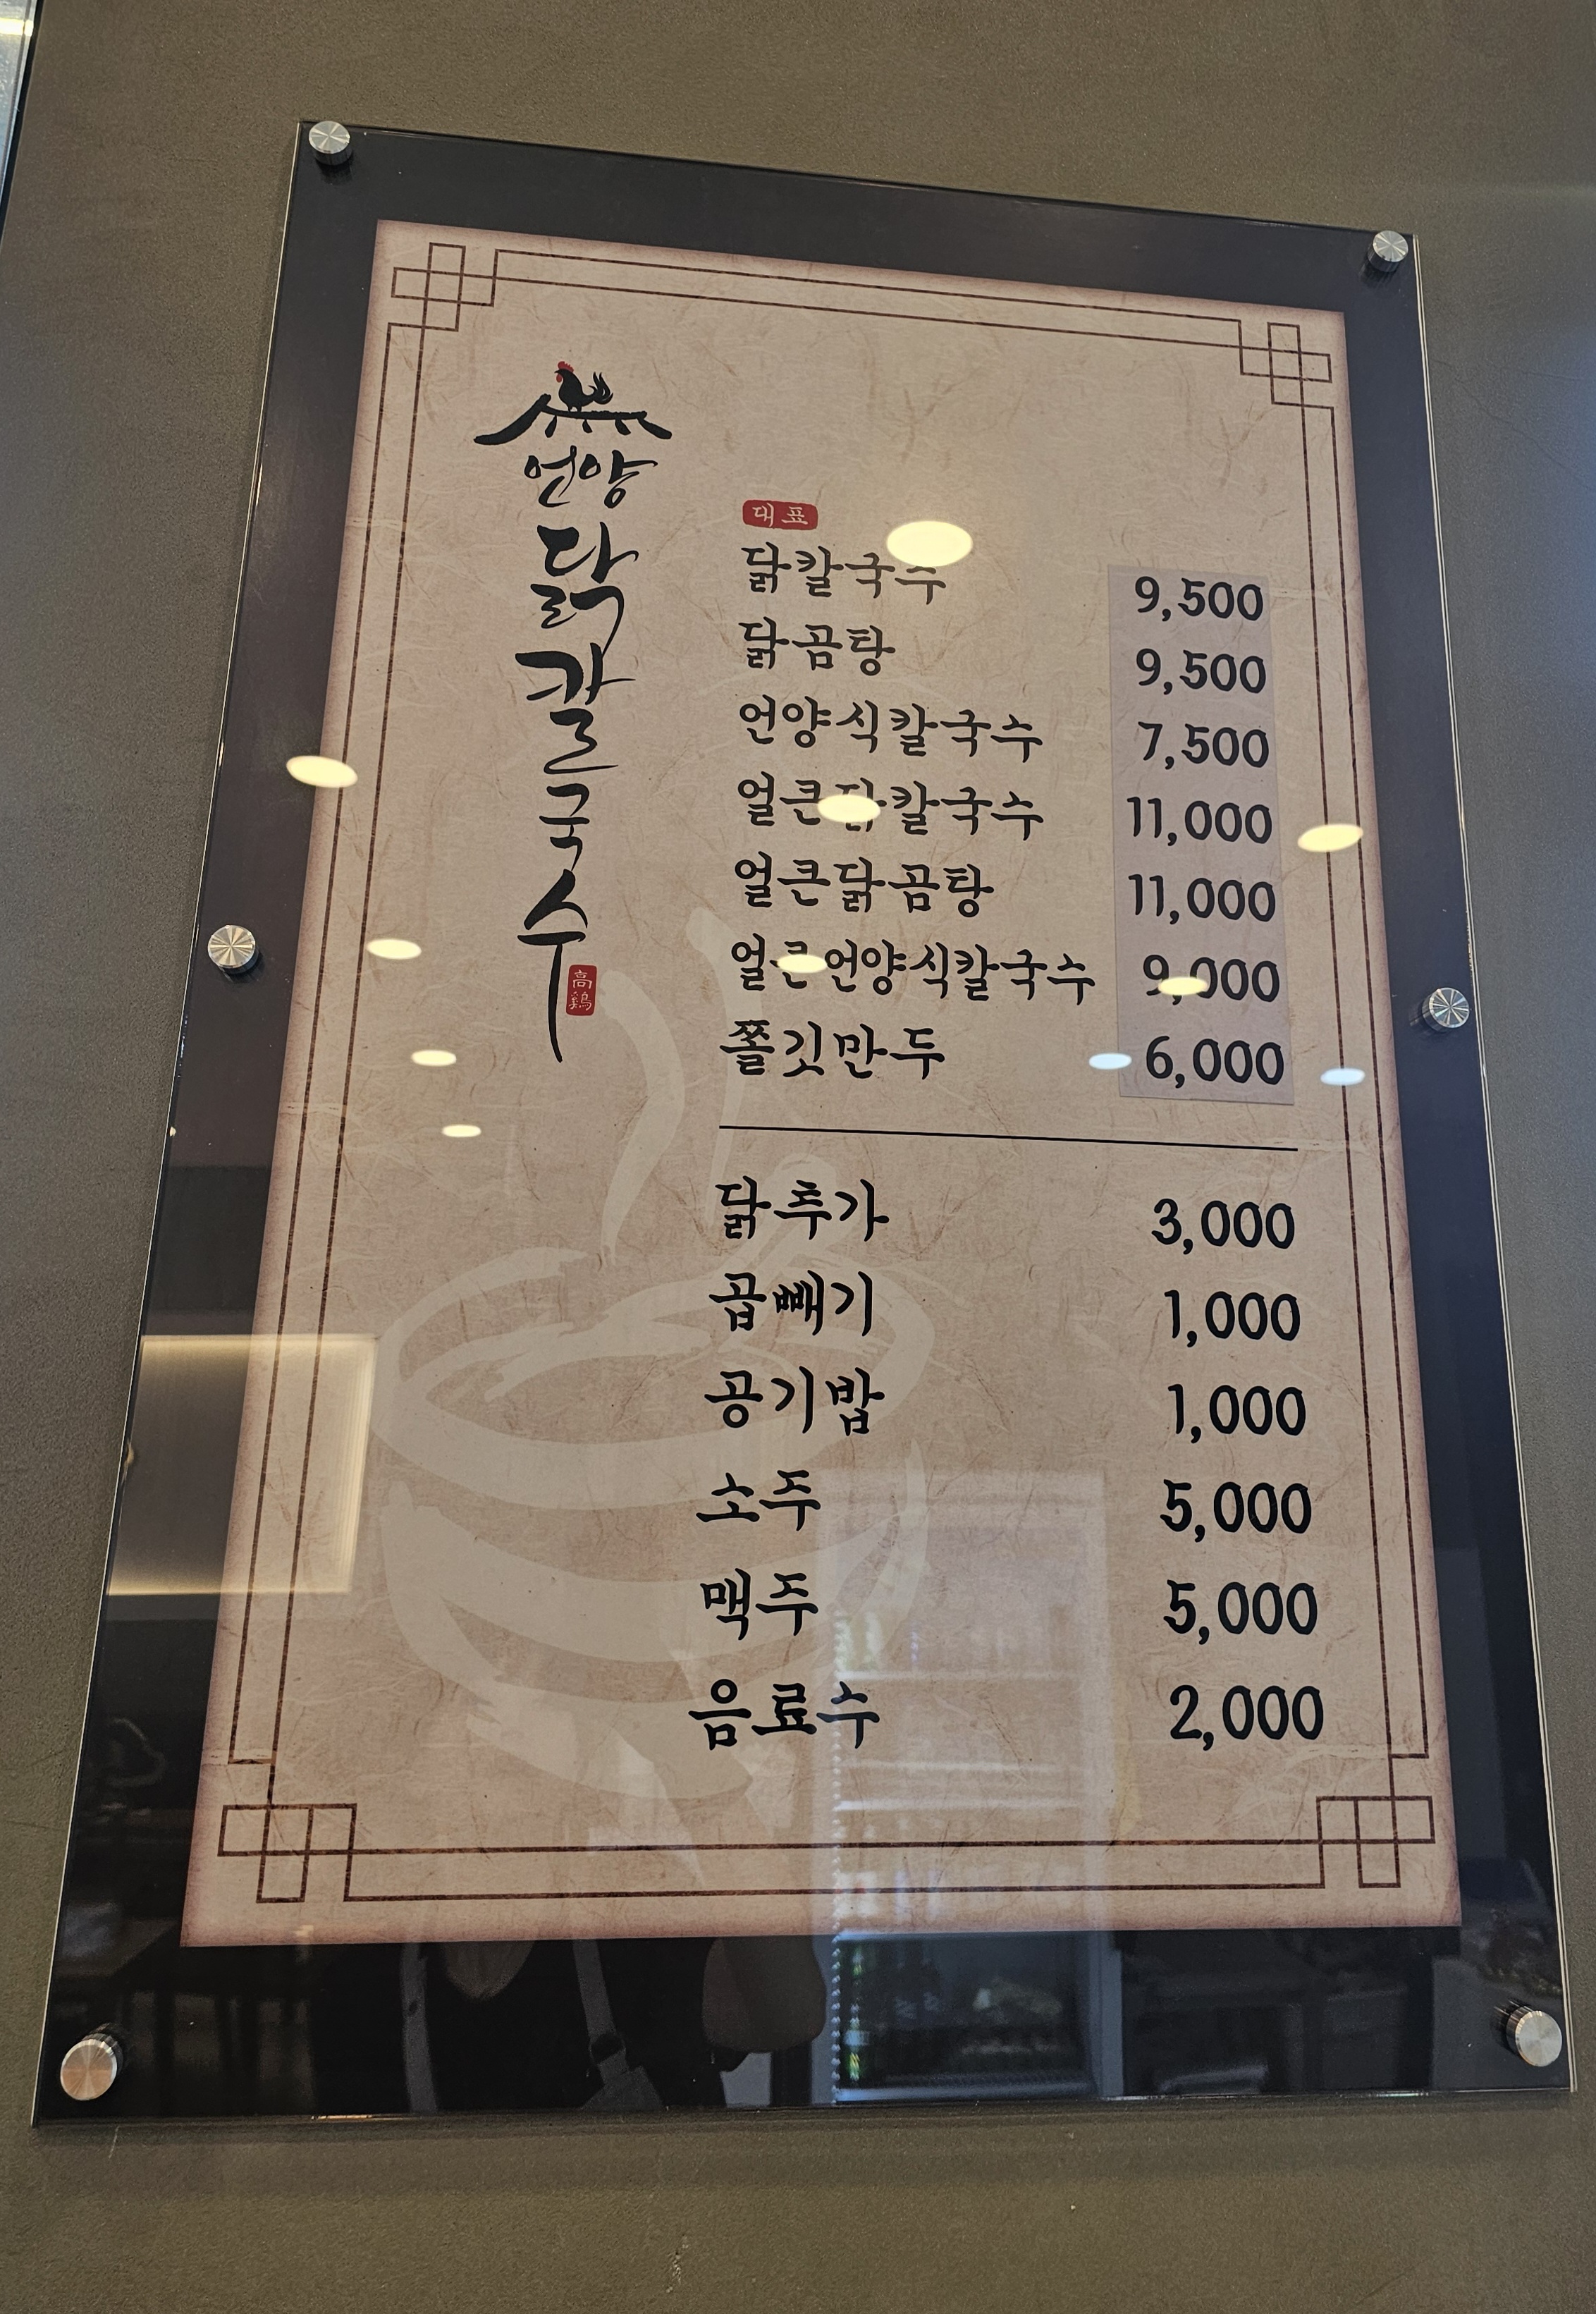 언양
닭
칼
국
수
高
鷄
대표
닭칼국수 9,500
닭곰탕 9,500
언양식칼국수 7,500
얼큰닭칼국수 11,000
얼큰닭곰탕 11,000
얼큰언양식칼국수 9,000
쫄깃만두 6,000
닭추가 3,000
곱빼기 1,000
공기밥 1,000
소주 5,000
맥주 5,000
음료수 2,000